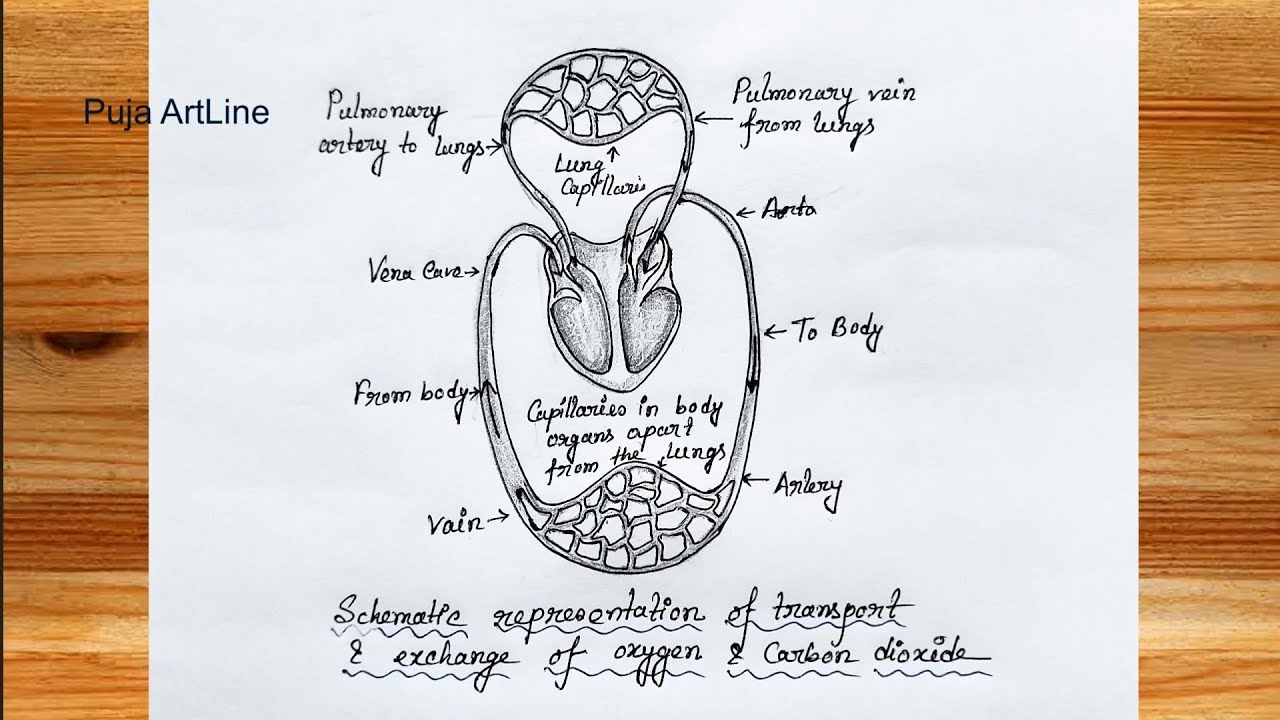 Puja ArtLine
Pulmonary
artery to lungs
Pulmonary vein
from lungs
Lung
Capillaries
Aorta
Vena Cava
To Body
From body
Capillaries in body
organs apart
from the lungs
Artery
Vain
Schematic representation of transport
& exchange of oxygen & Carbon dioxide